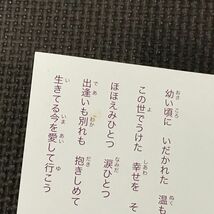 幼い頃に いだかれた 温も
この世でうけた 幸せを そ
ほほえみひとつ 涙ひとつ
出逢いも別れも 抱きしめて
生きてる今を愛して行こう